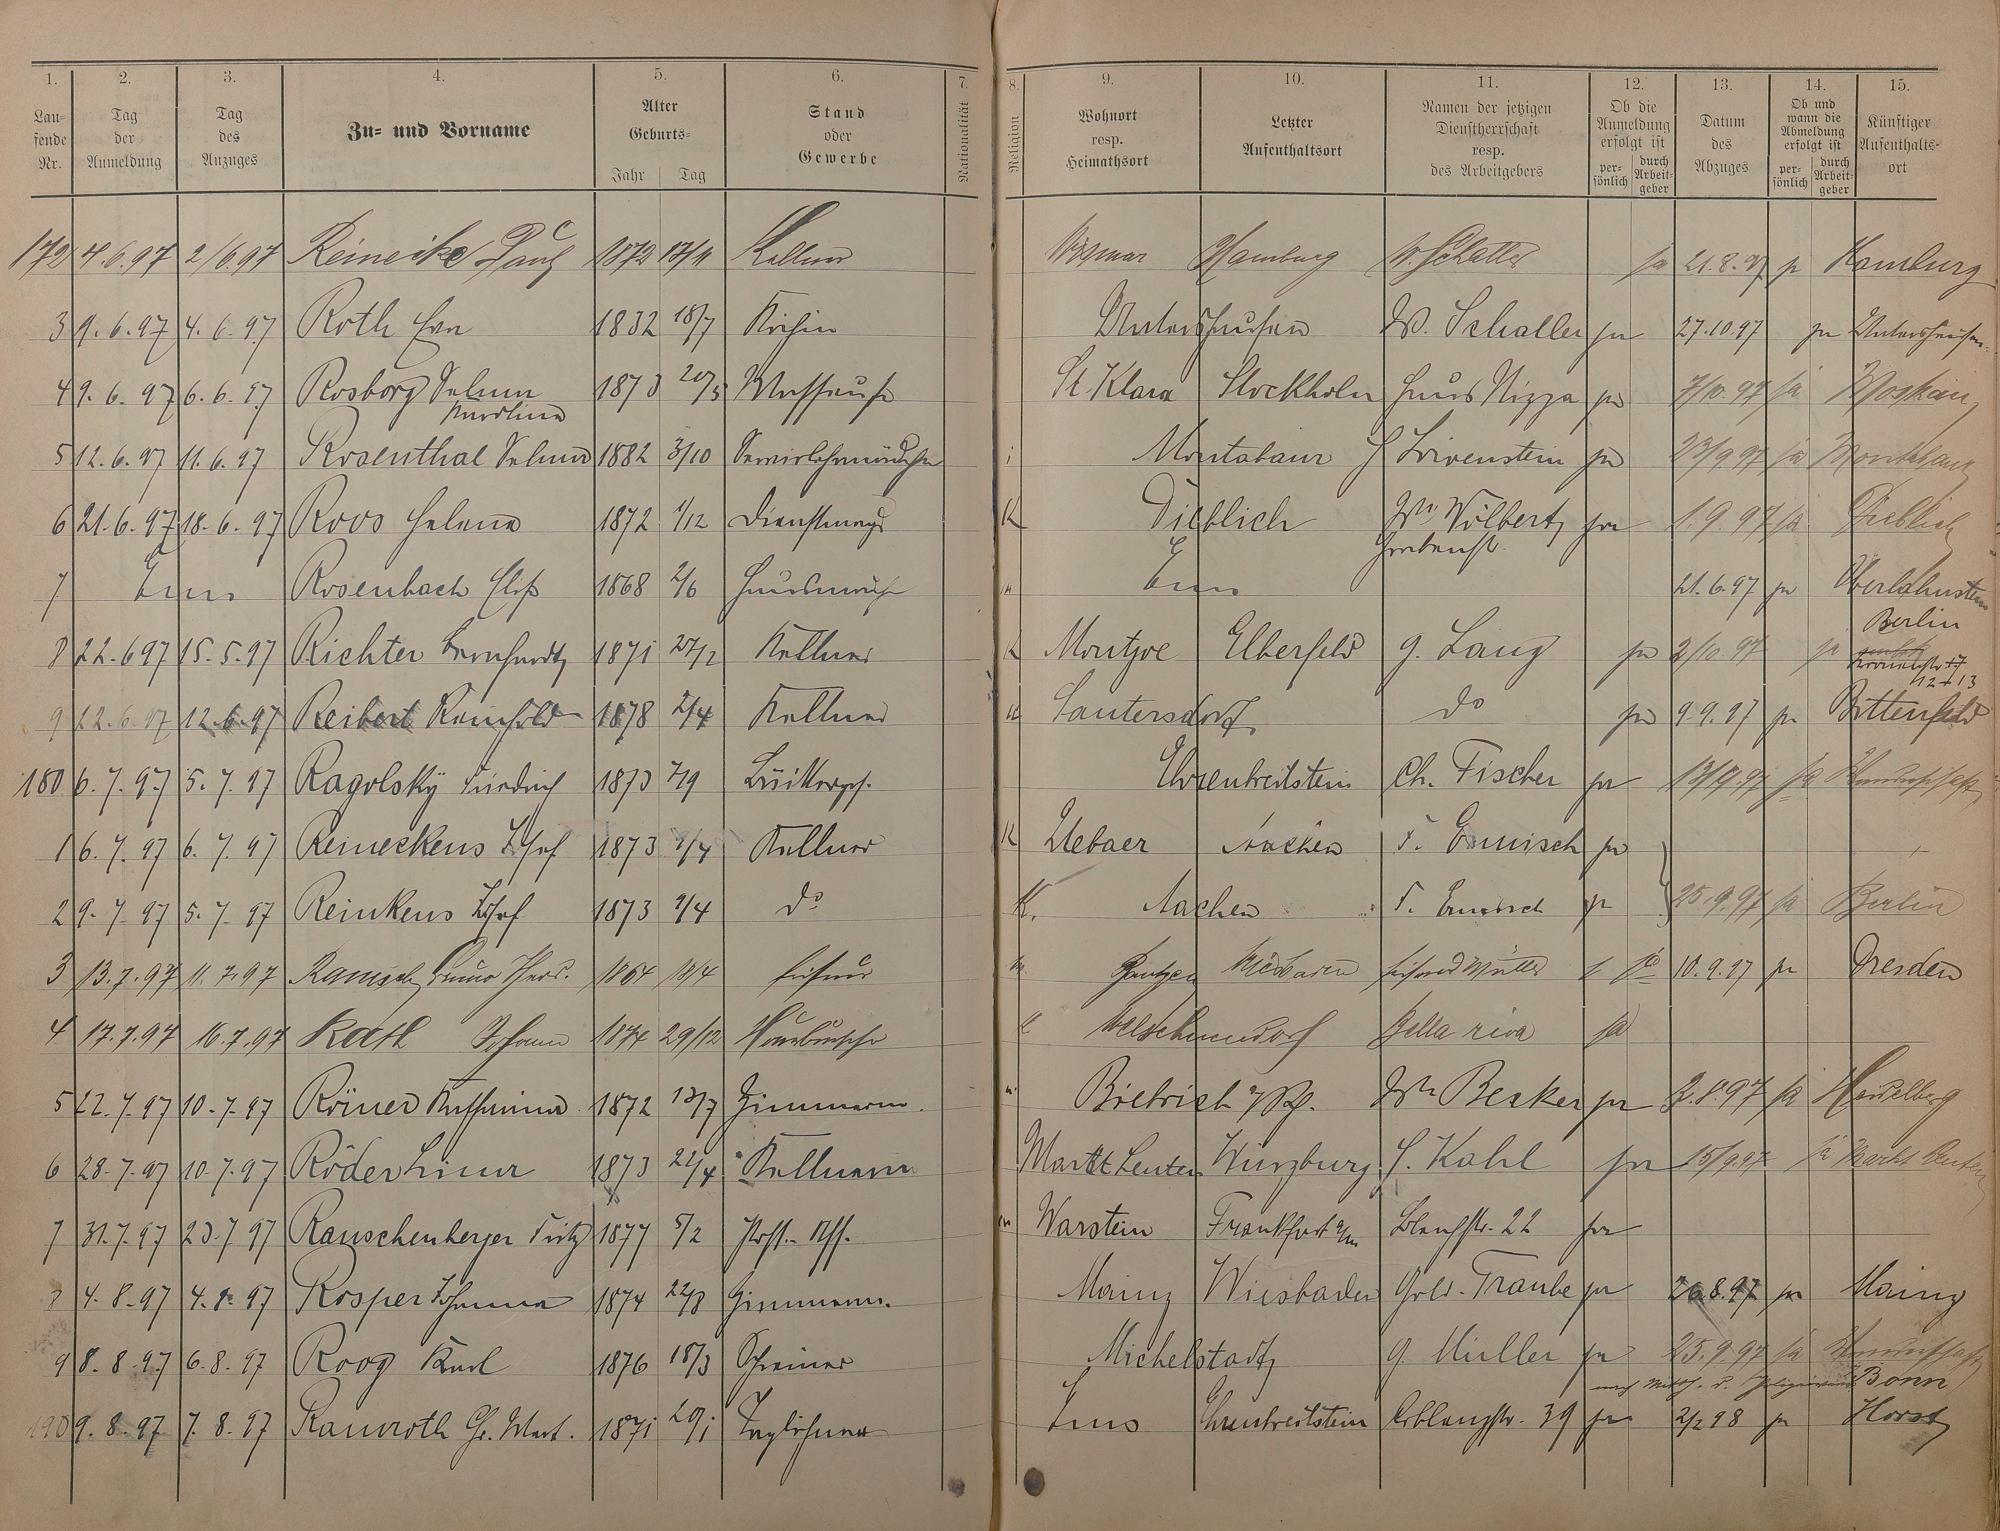 1. 2. 3. 4. 5. 6. 7. 8. 9. 10. 11. 12. 13. 14. 15.
Laufende Nr. Tag der Anmeldung Tag des Anzuges Zu- und Vorname Alter Geburts- Jahr Tag Stand oder Gewerbe Nationalität Religion Wohnort resp. Heimathsort Letzter Aufenthaltsort Namen der jetzigen Dienstherrschaft resp. des Arbeitgebers Ob die Anmeldung erfolgt ist persönlich durch Arbeitgeber Datum des Abzuges Ob und wann die Abmeldung erfolgt ist persönlich durch Arbeitgeber Künftiger Aufenthaltsort
172 4.6.97 2/6.97 Reinecke Paul 1872 Kellner Wismar Hamburg W. Schaller ja 21.8.97 ja Hamburg
3 9.6.97 4.6.97 Roth Eva 1832 18/7 Köchin Untershausen W. Schaller ja 27.10.97 ja Untershausen
4 9.6.97 6.6.97 Rosborg Selma 1873 20/5 Masseuse St. Klara Stockholm Haus Nizza ja 7/10.97 ja Moskau
5 12.6.97 11.6.97 Rosenthal Selma 1882 3/10 Servirlehrmädchen i Montabaur H Löwenstein ja 23/9 97 ja Montabaur
6 21.6.97 18.6.97 Roos Helena 1872 1/12 Dienstmagd K Dieblich Wn Wölbert ja 1.9.97 ja Dieblich
Grabenstr.
7 Ems Rosenbach Elise 1868 2/6 Ems 21.6.97 ja Oberlahnstein
8 22.6 97 15.5.97 Richter Bernhardt 1871 27/2 Kellner K Montjoe Elberfeld G. Lang ja 2/10.97 ja Berlin
12+13
9 22.6.97 12.6.97 Reibert Reinhold 1878 2/4 Kellner Lautersdorf do ja 9.9.97 ja Bittenfeld
180 6.7.97 5.7.97 Ragolsky Friedrich 1873 7/9 Bäckergeh. Ehrenbreitstein Ch. Fischer ja ja Wanderschaft
1 6.7.97 6.7.97 Reineckens Josef 1873 9/4 Kellner K Uebaer Aachen F. Ermisch ja
2 9.7.97 5.7.97 Reinkens Josef 1873 9/4 do K. Aachen F. Ermisch ja 25.9.97 ja Berlin
3 13.7.97 11.7.97 Bruno 1864 Friseur Bautzen Wiesbaden Friseur Müller 10.9.97 ja Dresden
4 17.7.97 16.7.97 Rath Johann 1874 29/12 Hausbursche K Welschneudorf Bella riva ja
5 22.7.97 10.7.97 Römer Katharina 1872 13/7 Zimmerm. Biebrich a/Rh. Wn Becker ja 2.8.97 ja Heidelberg
6 28.7.97 10.7.97 Röder Lina 1873 22/4 Kellnerin Markt Leuten Würzburg H. Kahl ja 15/9.97 ja Markt Leuten
7 31.7.97 23.7.97 Rauschenberger Fritz 1877 5/2 Post.-Ass. Warstein Frankfurt a/m Coblenzstr. 22 ja
8 4.8.97 4.8.97 Rosper Johanna 1874 22/8 Zimmerm. Mainz Wiesbaden Gold. Traube ja 26.8.97 ja Mainz
9 8.8.97 6.8.97 Roog Karl 1876 18/3 Schreiner Michelstadt G. Müller ja 25.9.97 ja Wanderschaft
nach Mitth. d. Bonn
190 9.8.97 7.8.97 Ramroth Gg. Mart. 1871 20/1 Taglöhner Ems Ehrenbreitstein Coblenzstr. 39 ja 2/2 98 ja Horst